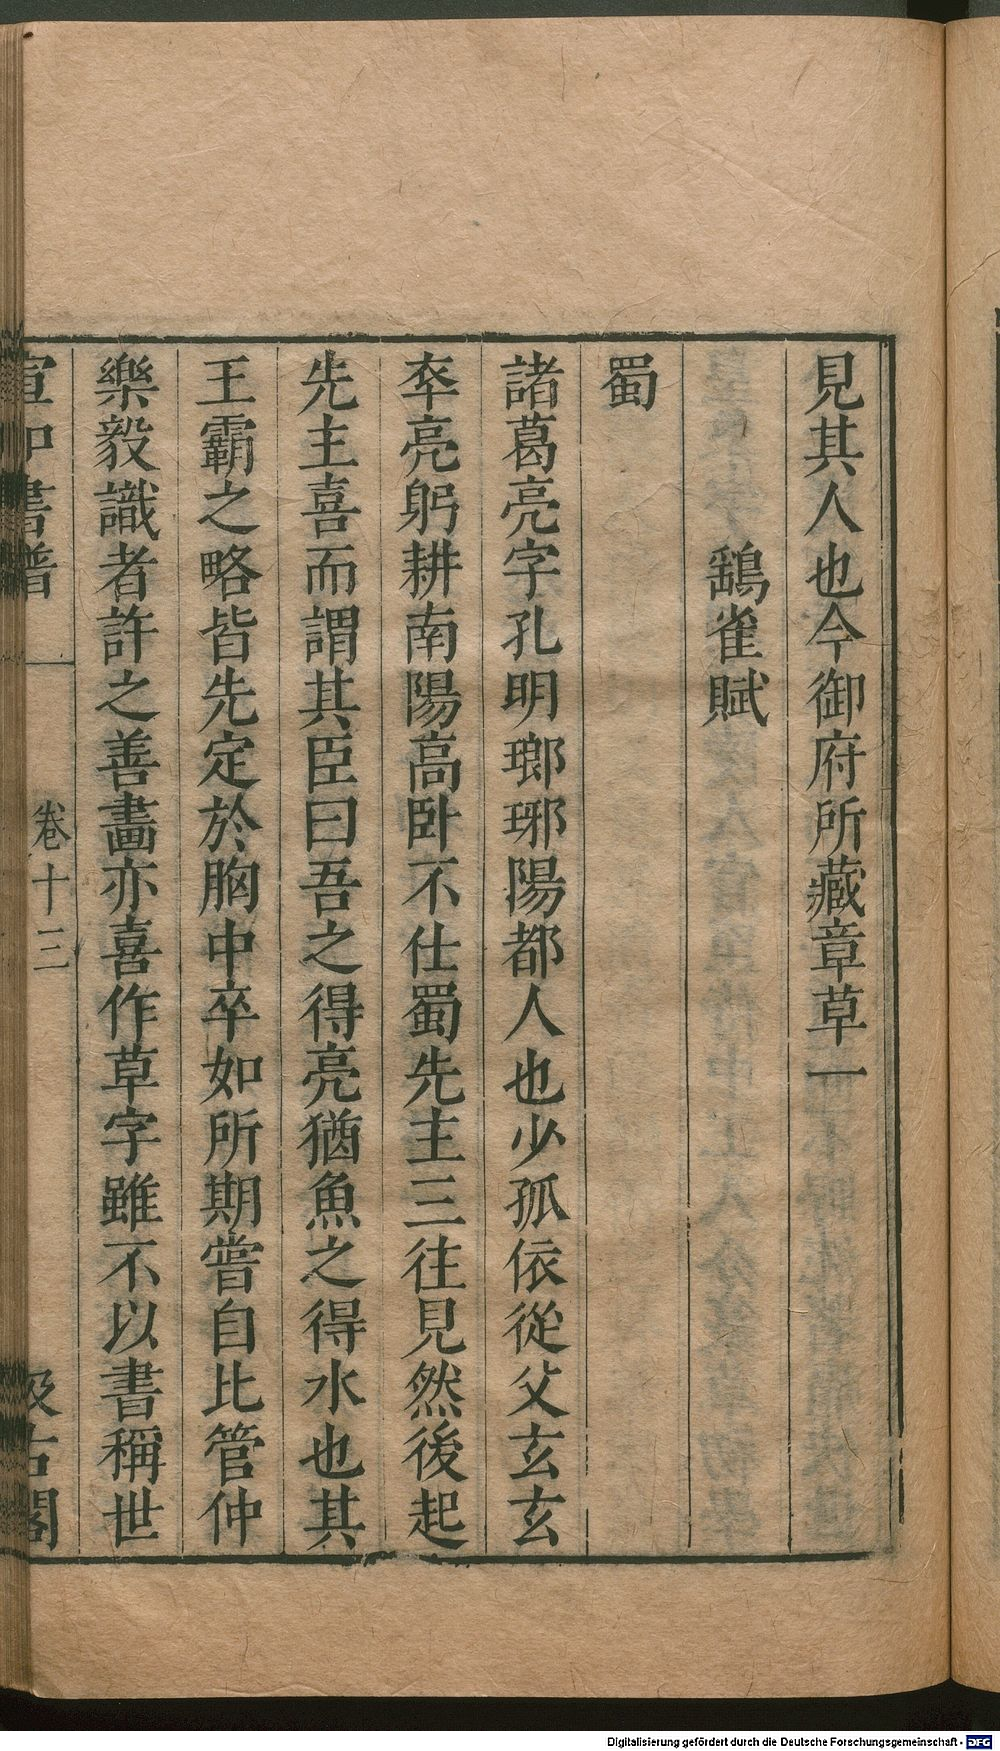 見其人也今御府所藏章草一
鷂雀賦
蜀
諸葛亮字孔明瑯琊陽都人也少孤依從父玄玄
卒亮躬耕南陽高臥不仕蜀先主三往見然後起
先主喜而謂其臣曰吾之得亮猶魚之得水也其
王霸之略皆先定於胸中卒如所期嘗自比管仲
樂毅識者許之善畫亦喜作草字雖不以書稱世
宣和書譜
卷十三
汲古閣
Digitalisierung gefördert durch die Deutsche Forschungsgemeinschaft - DFG